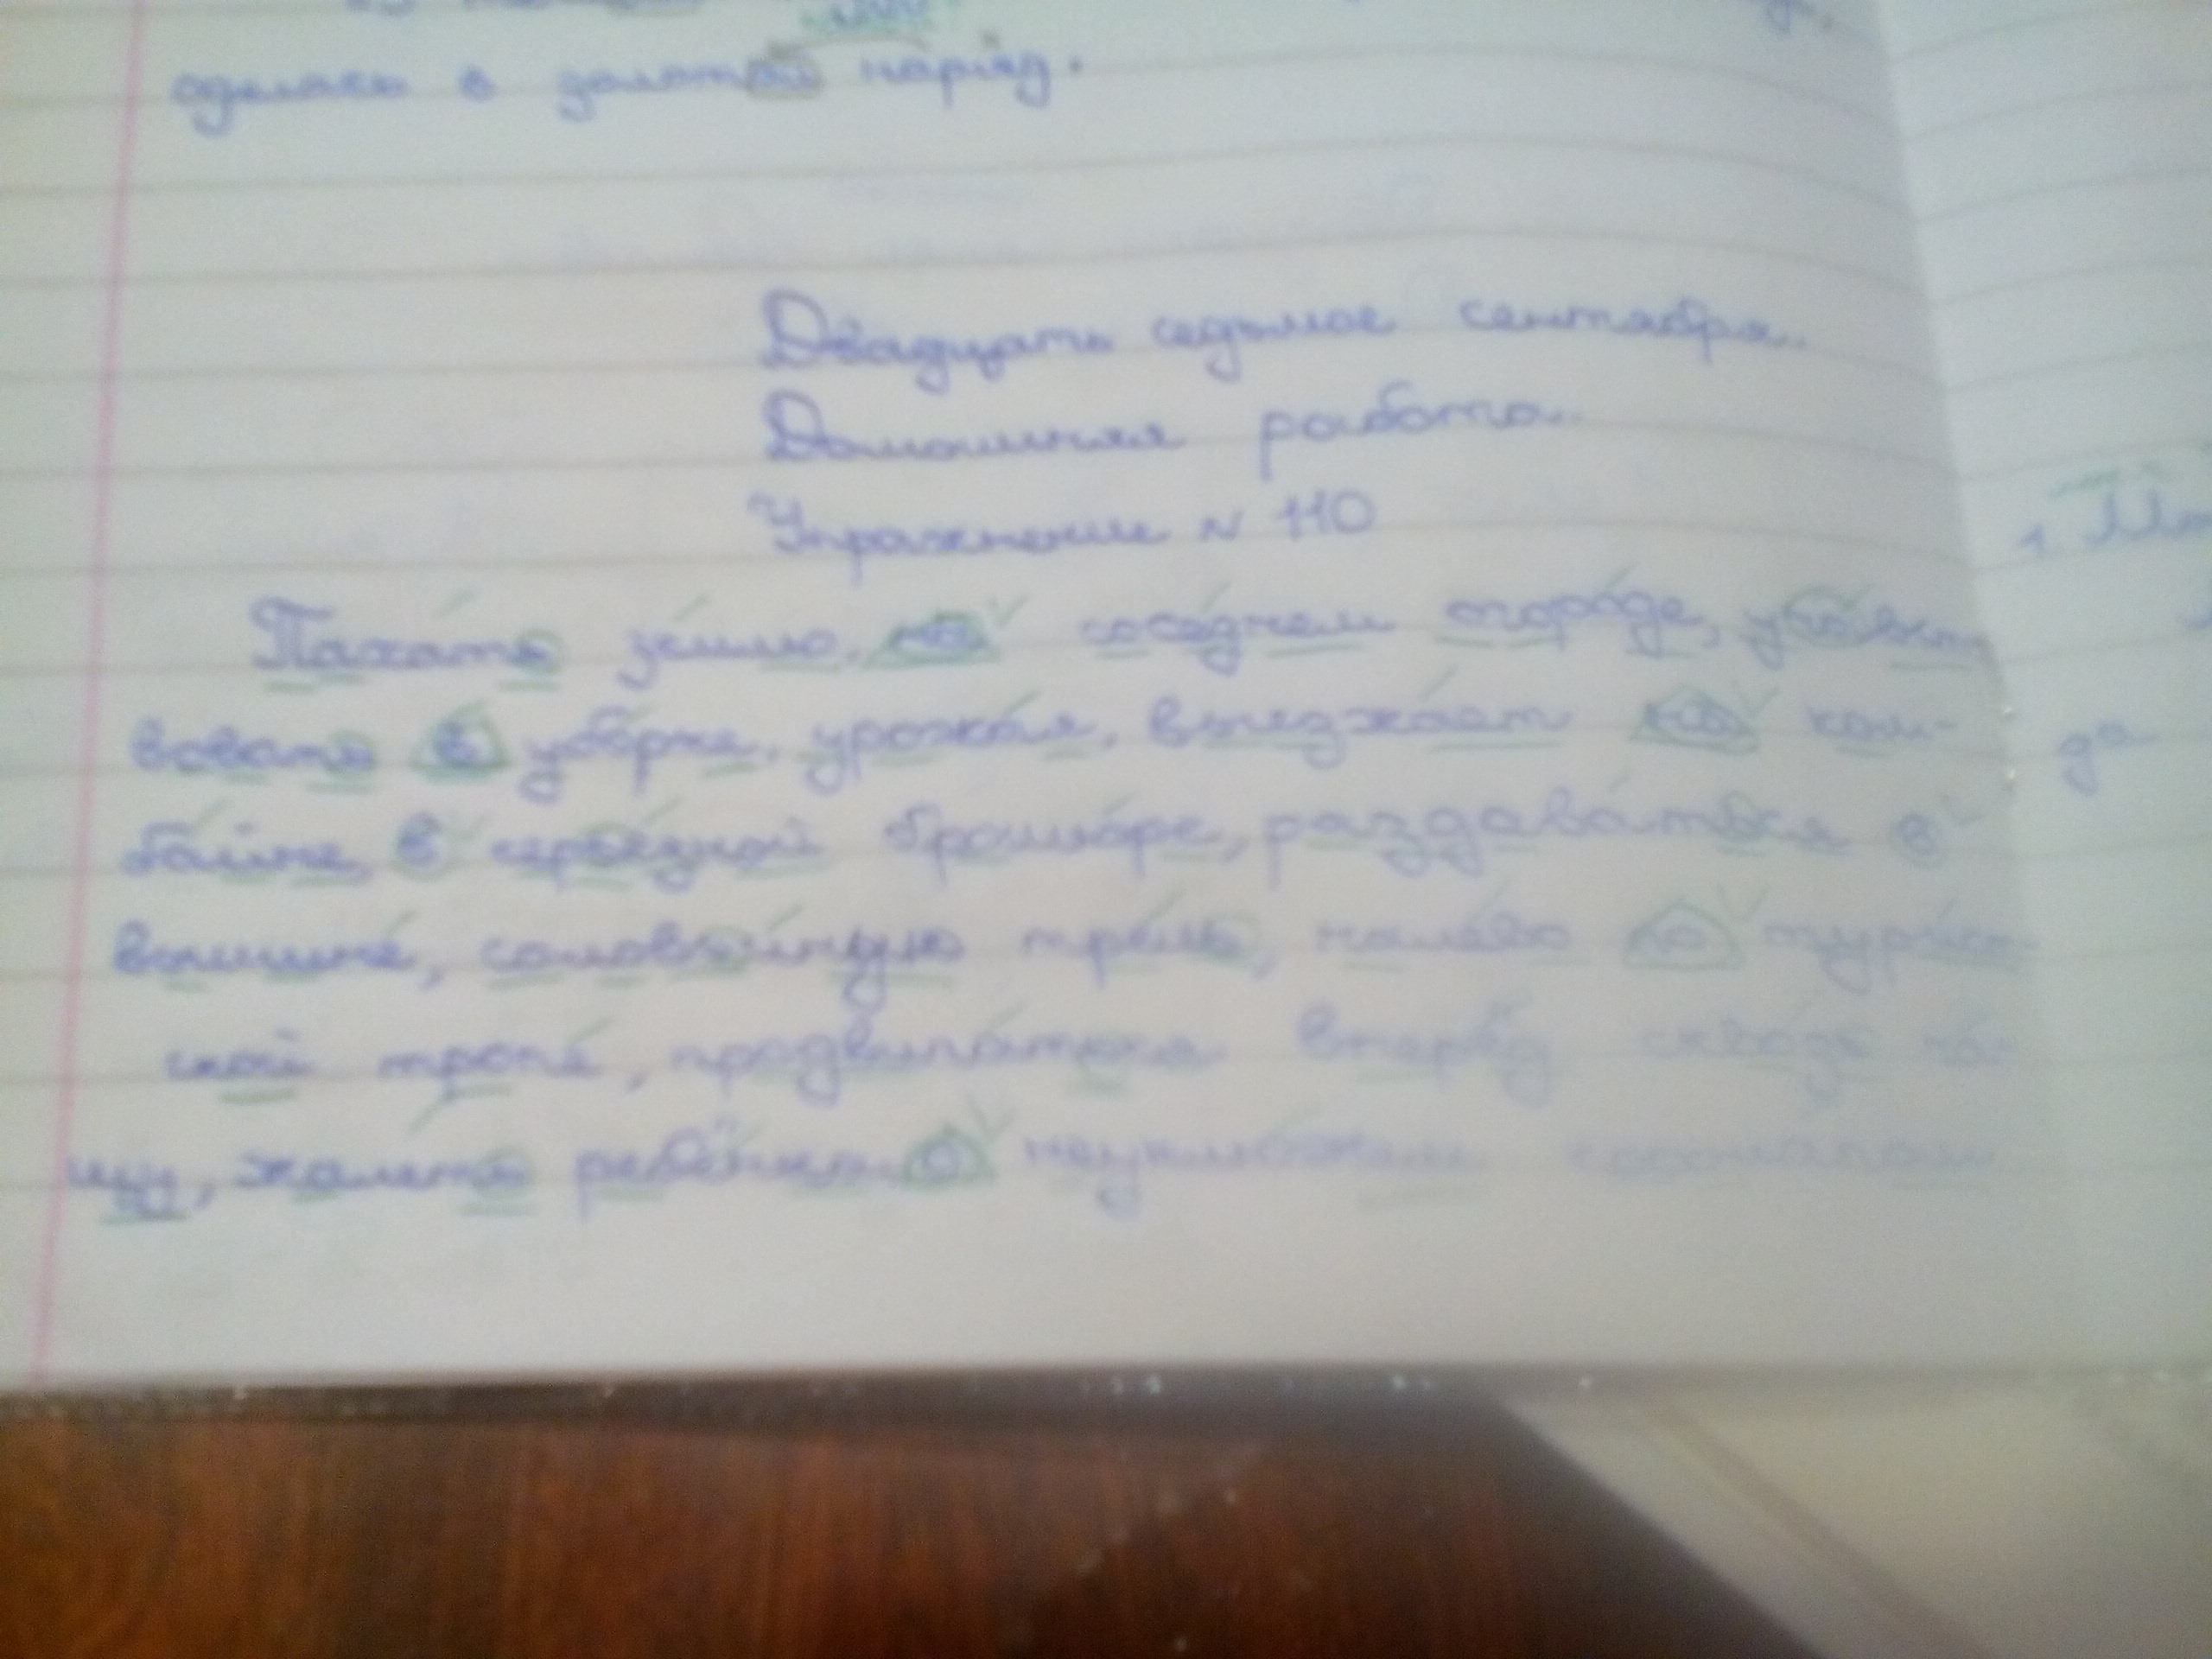 в золотой наряд.
Двадцать седьмое сентября.
Домашняя работа.
Упражнение N 110
Пахать землю, на соседнем огороде,
вовать в уборке, урожая, выезжает на ком-
байне, в серьёзной брошюре, раздаваться в
вышине, соловьиную трель, налево по турист-
ской тропе, продвигаться вперёд сквозь ча-
щу, жалеть ребёнка, о неуклюжем
да